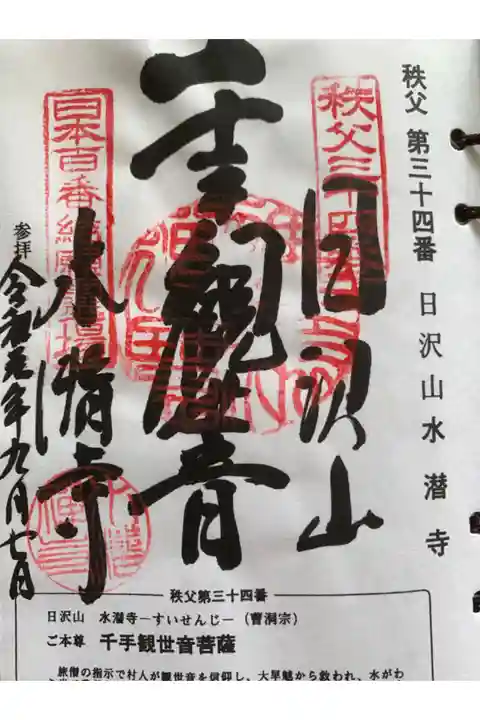 秩父 第三十四番 日沢山水潜寺
秩父三十四
日沢山
千手観世音
日本百番結願道場
水潜寺
参拝 令和元年九月七日
秩父第三十四番
日沢山 水潜寺ーすいせんじー（曹洞宗）
ご本尊 千手観世音菩薩
旅僧の指示で村人が観世音を信仰し、大旱魃から救われ、水がわ